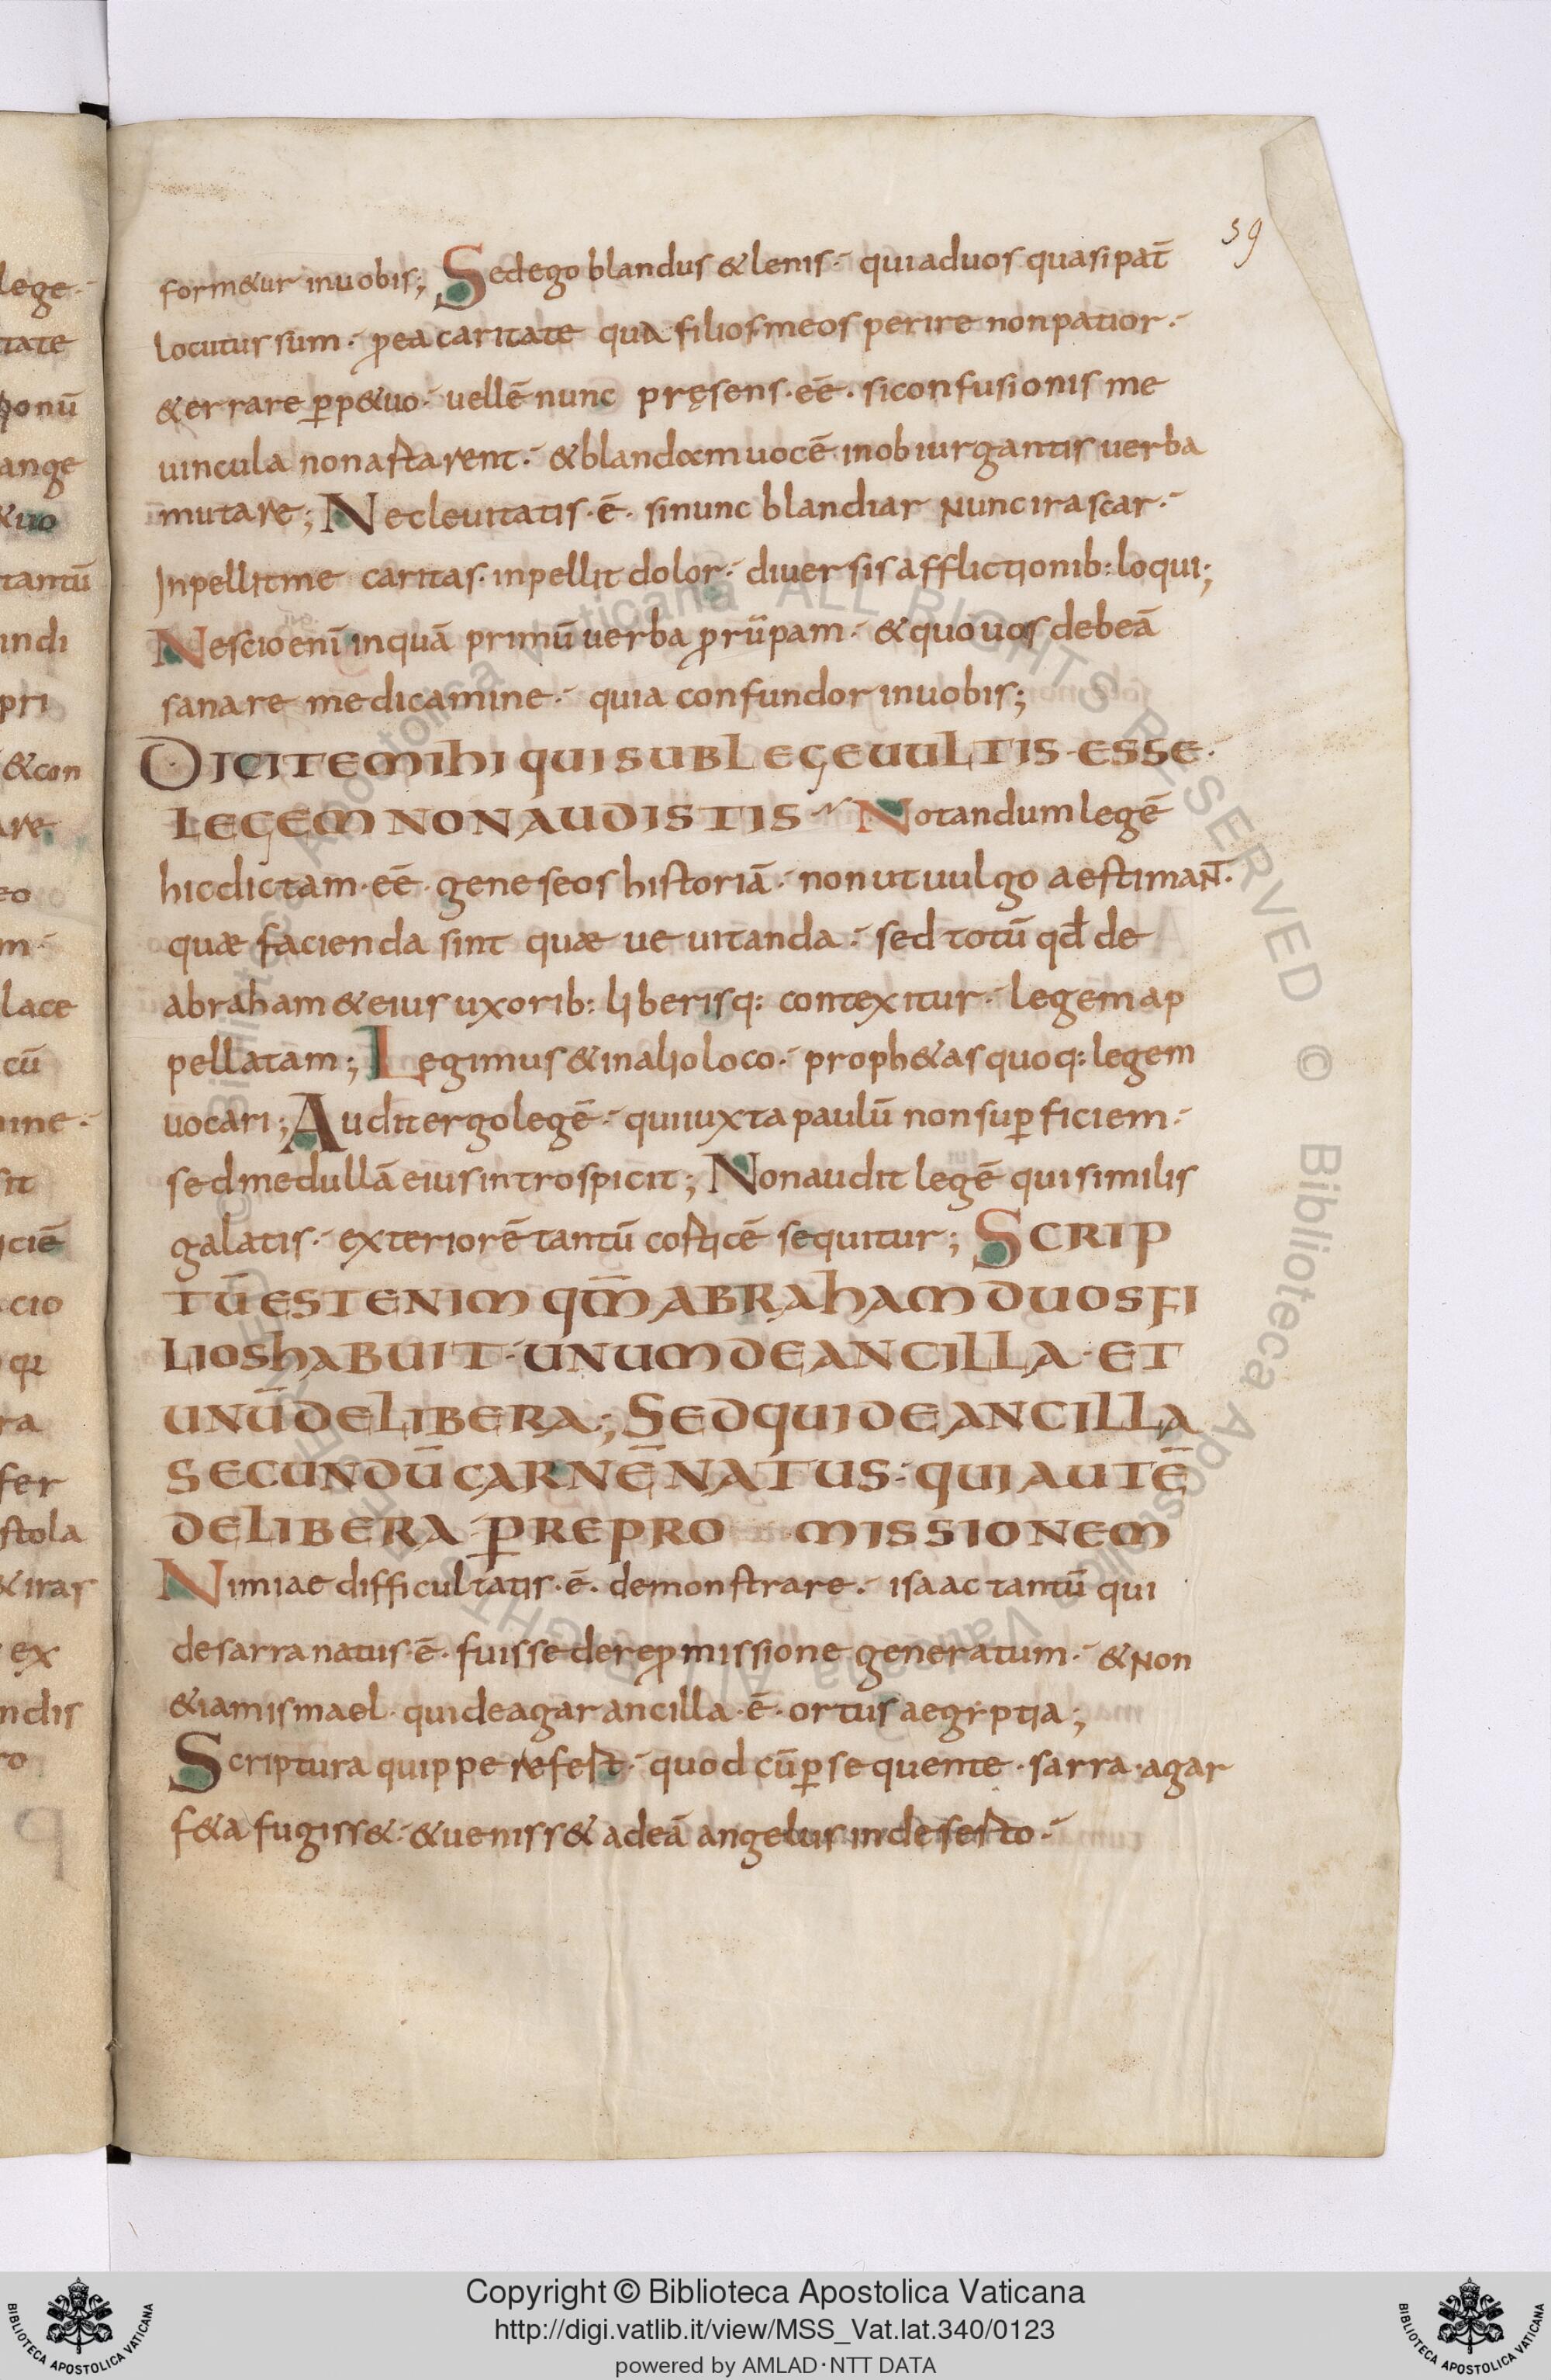 59
form&ur inuobis; Sed ego blandus & lenis · qui aduos quasi pat̄
locutus sum · ꝓ ea caritate qua filios meos perire non patior ·
& errare ꝑp&uo · uellē nunc pręsens · eē · si confusionis me
uincula non astarent · & blandam uocē in obiurgantis uerba
mutare; Nec leuitatis · ē · si nunc blandiar nunc irascar ·
Inpellit me caritas · inpellit dolor · diuersis afflictionib: loqui;
Nescio enī in quā primū uerba ꝓrūpam · & quo uos debeā
sanare medicamine · quia confundor inuobis;
DICITE MIHI QUI SUB LEGE UULTIS · ESSE ·
LEGEM NON AUDISTIS Notandum legē
hic dictam · eē · geneseos historiā · non ut uulgo aestimaNT̄ ·
quæ facienda sint quæ ue uitanda · sed totū qđ de
abraham & eius uxorib: liberisq: contexitur · legem ap
pellatam; Legimus & in alio loco · proph&as quoq: legem
uocari; Audit ergo legē · qui iuxta paulū non suꝑficiem ·
sed medullā eius introspicit; Non audit legē qui similis
galatis · exteriorē tantū corticē sequitur; SCRIP
TŪ EST ENIM QM̄ ABRAHAM DUOS FI
LIOS HABUIT · UNUM DE ANCILLA · ET
UNŪ DE LIBERA; SED QUI DE ANCILLA
SECUNDŪ CARNĒ NATUS · QUI AUTĒ
DE LIBERA · P̱ REPRO MISSIONEM
Nimiae difficultatis · ē · demonstrare · isaac tantū qui
de sarra natus · ē · fuisse de reꝓmissione generatum · & non
&iam ismael · qui de agar ancilla · ē · ortus aegyptia;
Scriptura quippe refert · quod cū ꝑsequente · sarra · agar
f&a fugiss& · & ueniss& ad eā angelus in deserto ·
lege ·
tate
ponū
ange
&uo
tantū
undi
pri
&con
are
eo
m ·
lace
cū
ine ·
sit
iciē
cio
ra
fer
stola
&iras
ex
ndis
ro
Copyright © Biblioteca Apostolica Vaticana
http://digi.vatlib.it/view/MSS_Vat.lat.340/0123
powered by AMLAD·NTT DATA
BIBLIOTECA APOSTOLICA VATICANA
BIBLIOTECA APOSTOLICA VATICANA